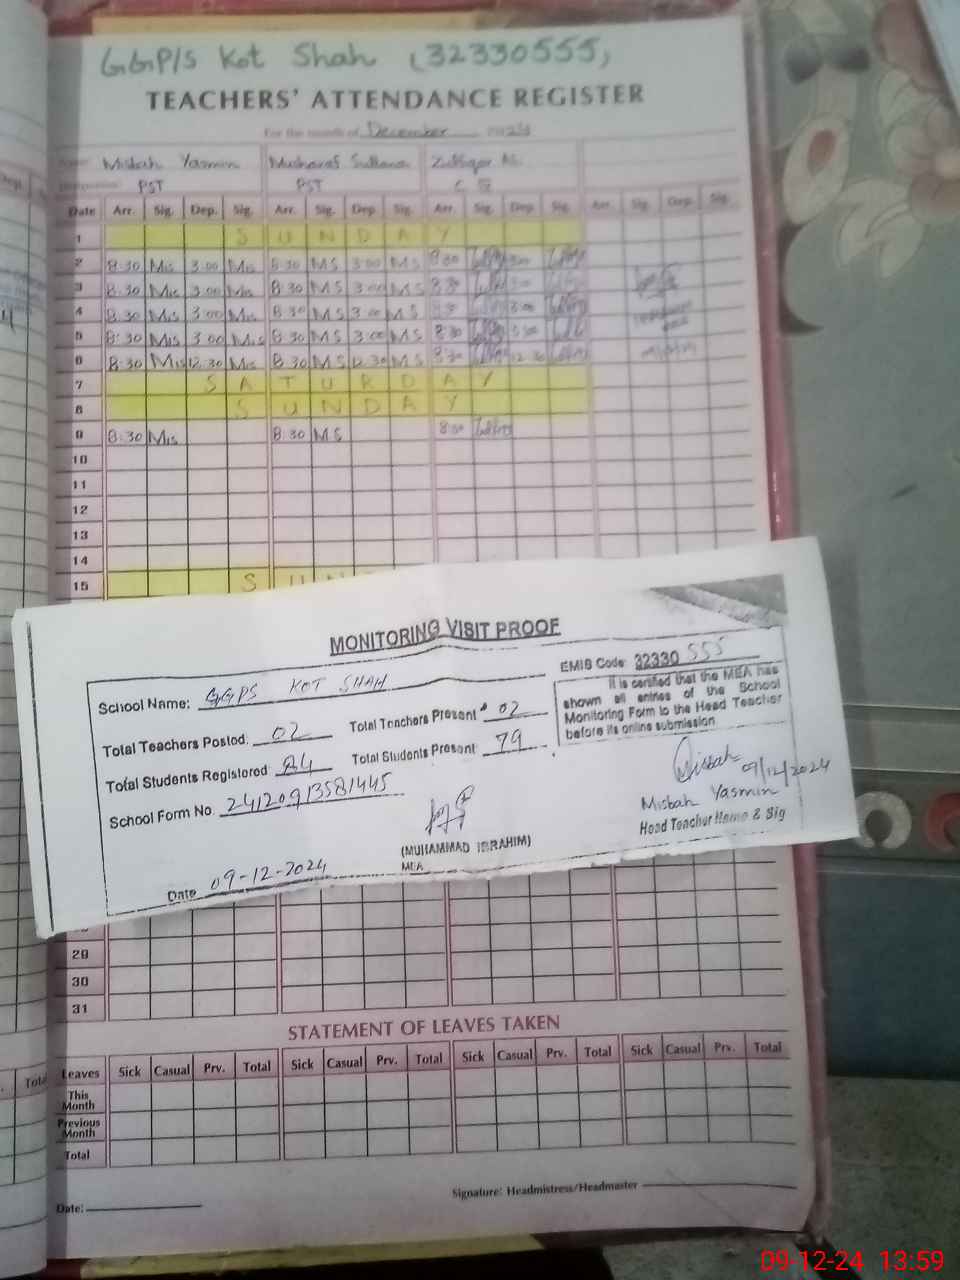 GGP/S Kot Shah (32330555)
TEACHERS' ATTENDANCE REGISTER
For the month of December 2024
Name: Misbah Yasmin Musharaf Sultana
Designation: PST PST
Date Arr. Sig. Dep. Sig. Arr. Sig. Dep. Sig. Arr. Sig. Dep. Sig. Arr. Sig. Dep. Sig.
1 S U N D A Y
2 8:30 Mis 3:00 Mis 8:30 MS 3:00 MS 8:30
3 8:30 Mis 3:00 Mis 8:30 MS 3:00 MS 8:30
4 8:30 Mis 3:00 Mis 8:30 MS 3:00 MS 8:30 3:00
5 8:30 Mis 3:00 Mis 8:30 MS 3:00 MS 8:30 3:00
6 8:30 Mis 12:30 Mis 8:30 MS 12:30 MS 8:30 12:30
7 S A T U R D A Y
8 S U N D A Y
9 8:30 Mis 8:30 MS 8:30
10
11
12
13
14
15 S U N
MONITORING VISIT PROOF
EMIS Code: 32330555
School Name: GGPS KOT SHAH
It is certified that the MEA has
shown all entries of the School
Monitoring Form to the Head Teacher
before its online submission
Total Teachers Posted: 02 Total Teachers Present: 02
Total Students Registered: 84 Total Students Present: 79
School Form No. 24120913581445
Misbah 09/12/2024
Misbah Yasmin
Head Teacher Name & Sig
(MUHAMMAD IBRAHIM)
MEA
Date 09-12-2024
29
30
31
STATEMENT OF LEAVES TAKEN
Leaves Sick Casual Prv. Total Sick Casual Prv. Total Sick Casual Prv. Total Sick Casual Prv. Total
This
Month
Previous
Month
Total
Signature: Headmistress/Headmaster
Date:
09-12-24 13:59